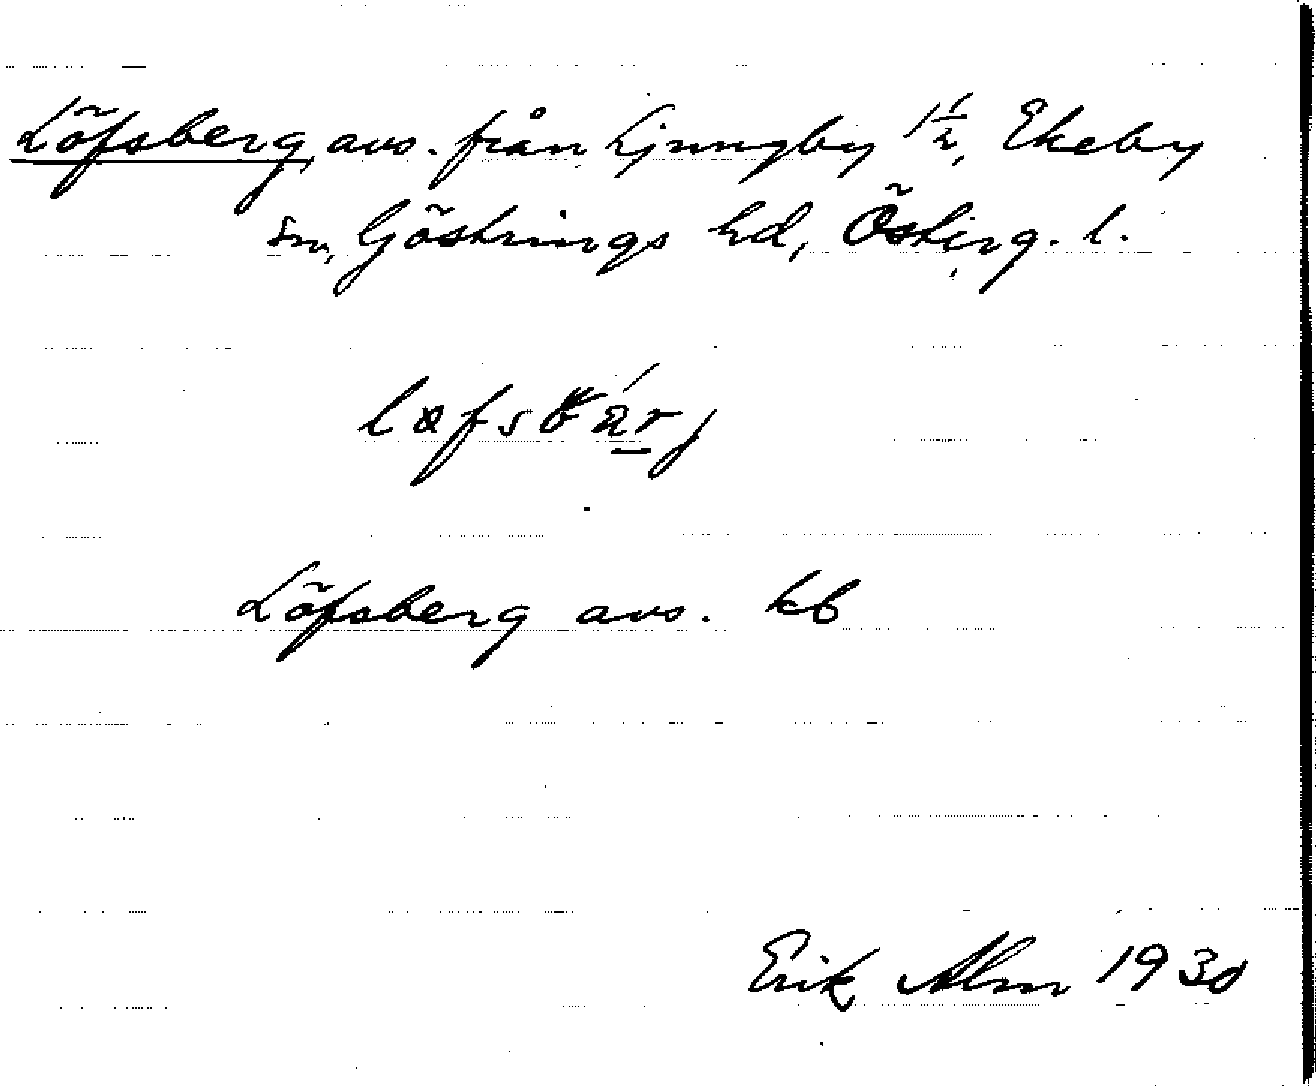 Löfsberg, avs. från Ljungby 1 1/2, Ekeby
sn, Göstrings hd, Österg. l.
Löfsberg avs. kb
Erik Alm 1930